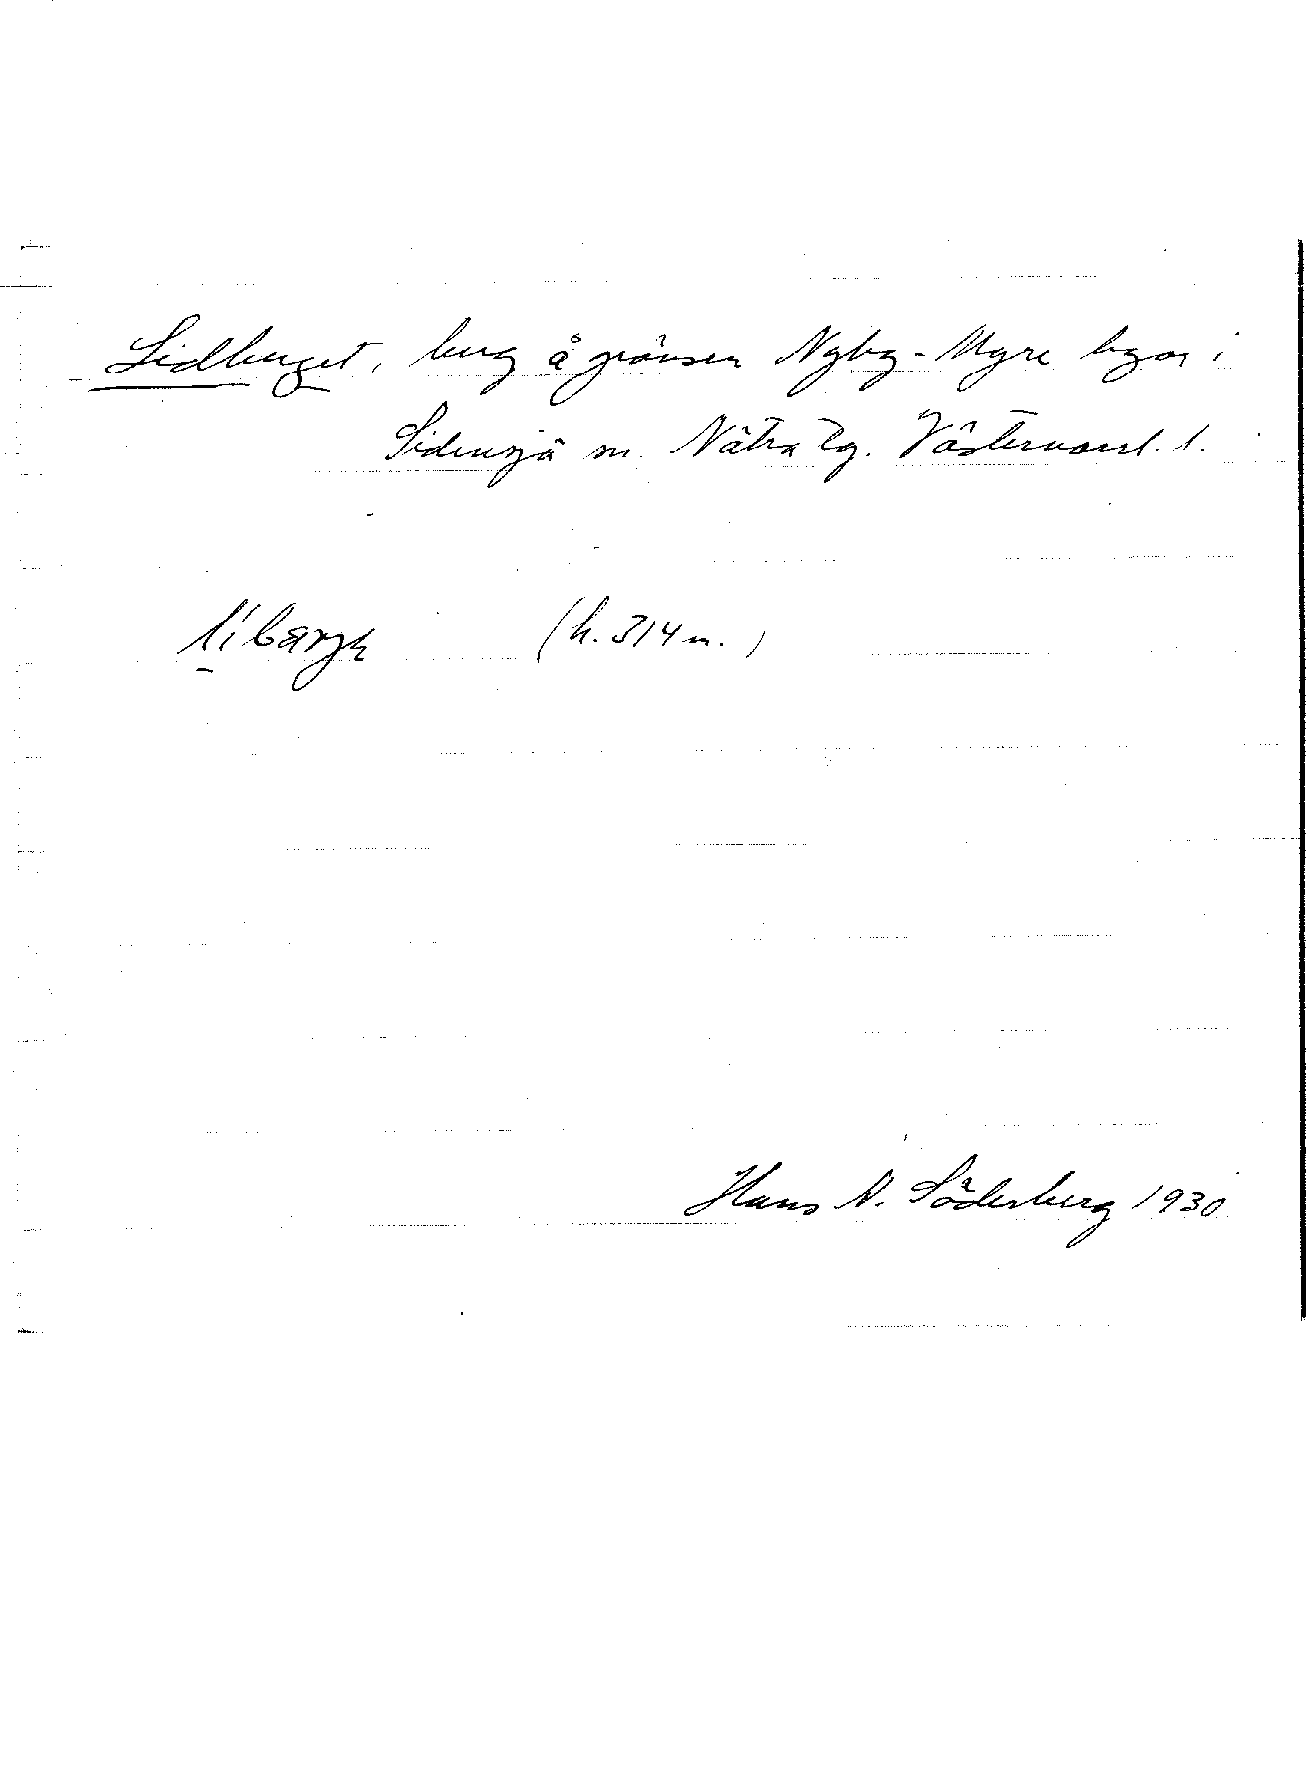 Lidberget, berg å gränsen Nyby - Myre byar i
Sidensjö sn. Nätra tg. Västernorrl. l.
(h. 314 m.)
Hans N. Söderberg 1930